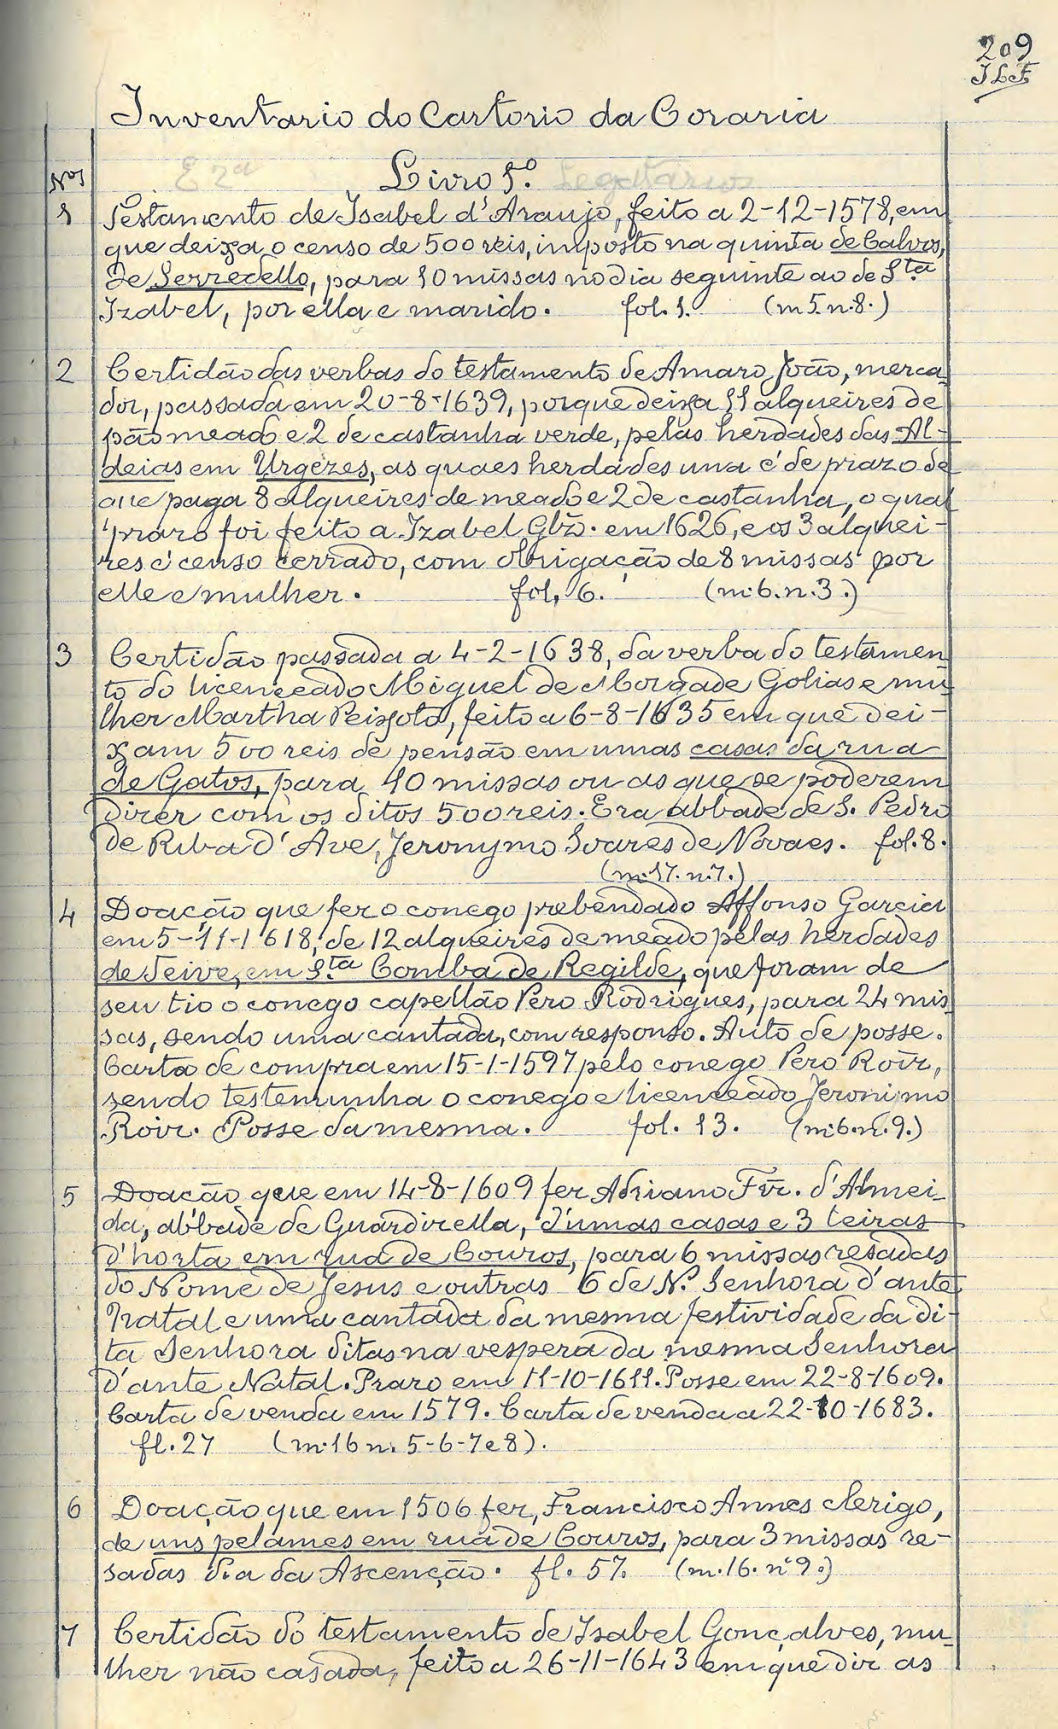 209
JLF
Inventario do Cartorio da Coraria
Livro 1º.
Nos
1 Testamento de Isabel d'Araujo, feito a 2-12-1578, em
que deixa o censo de 500 reis, imposto na quinta de Calvos,
de Serzedello, para 10 missas no dia seguinte ao de Sta
Izabel, por ella e marido. fol. 1. (m 5. n. 8.)
2 Certidão das verbas do testamento de Amaro João, merca-
dor, passada em 20-8-1639, porque deixa 11 alqueires de
pão meado e 2 de castanha verde, pelas herdades das Al-
deias em Urgezes, as quaes herdades uma é de prazo de
que paga 8 alqueires de meado e 2 de castanha, o qual
prazo foi feito a Izabel Glz̃. em 1626, e os 3 alquei-
res é censo cerrado, com obrigação de 8 missas por
elle e mulher. fol. 6. (m. 6. n. 3.)
3 Certidão passada a 4-2-1638, da verba do testamen-
to do licenceado Miguel de Morgade Golias e mu-
lher Martha Peixoto, feito a 6-8-1635 em que dei-
xam 500 reis de pensão em umas casas da rua
de Gatos, para 10 missas ou as que se poderem
dizer com os ditos 500 reis. Era abbade de S. Pedro
de Riba d'Ave, Jeronymo Soares de Novaes. fol. 8.
(m. 17. n. 7.)
4 Doação que fez o conego prebendado Affonso Garcia
em 5-11-1618, de 12 alqueires de meado pelas herdades
de Seive, em Sta Comba de Regilde, que foram de
seu tio o conego capellão Pero Rodrigues, para 24 mis
sas, sendo uma cantada, com responso. Auto de posse.
Carta de compra em 15-1-1597 pelo conego Pero Roiz,
sendo testemunha o conego e licenceado Jeronimo
Roiz. Posse da mesma. fol. 13. (m. 6. n. 9.)
5 Doação que em 14-8-1609 fez Adriano Frz̃. d'Almei-
da, abbade de Guardizella, d'umas casas e 3 leiras
d'horta em rua de Couros, para 6 missas resadas
do Nome de Jesus e outras 6 de N. Senhora d'ante
Natal e uma cantada da mesma festividade da di-
ta Senhora ditas na vespera da mesma Senhora
d'ante Natal. Prazo em 11-10-1611. Posse em 22-8-1609.
Carta de venda em 1579. Carta de venda a 22-10-1683.
fl. 27 (m. 16 n. 5-6-7 e 8).
6 Doação que em 1506 fez, Francisco Annes clerigo,
de uns pelames em rua de Couros, para 3 missas re-
sadas dia da Ascenção. fl. 57. (m. 16. nº 9.)
7 Certidão do testamento de Isabel Gonçalves, mu-
lher não casada, feito a 26-11-1643 em que diz as